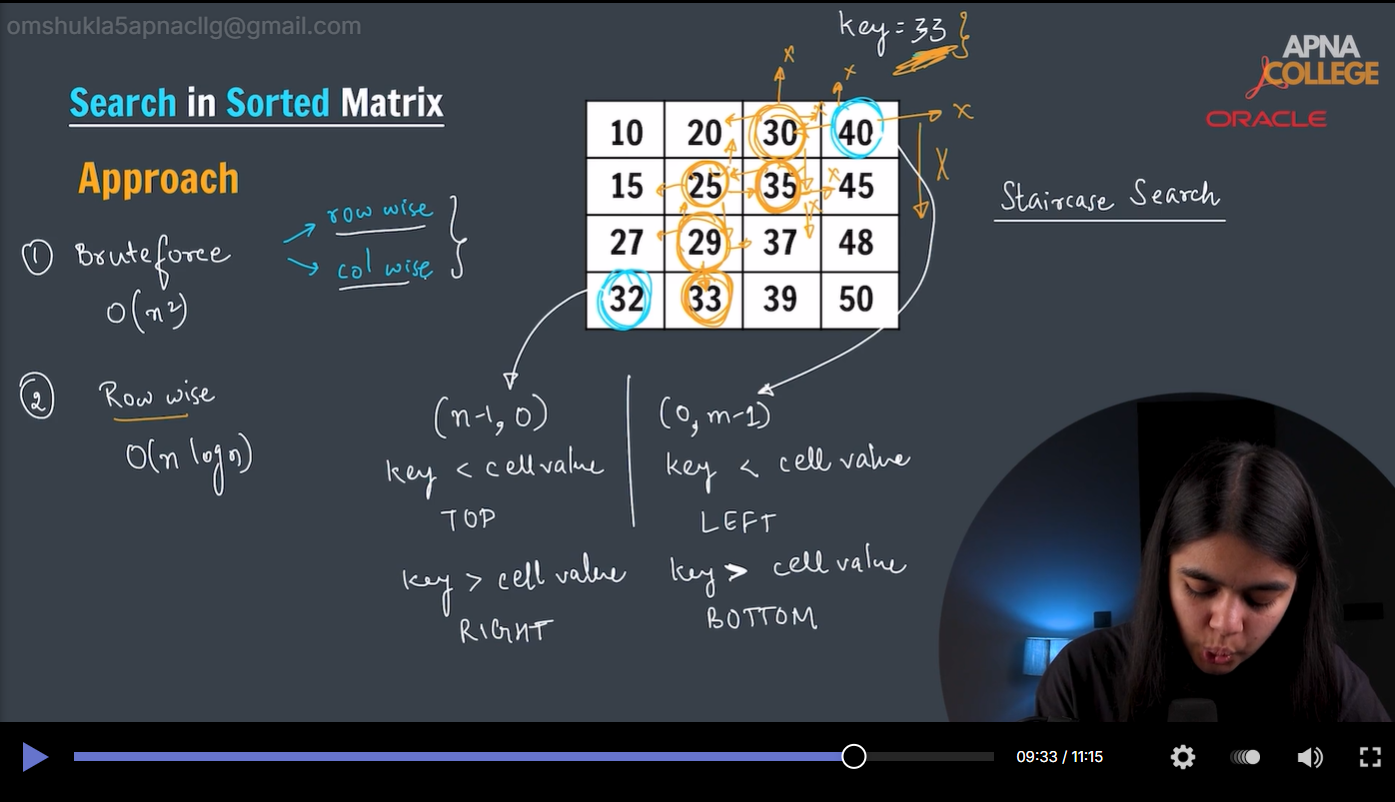 omshukla5apnacllg@gmail.com
key = 33 }
APNA
COLLEGE
ORACLE
Search in Sorted Matrix
Approach
① Bruteforce
O(n²)
row wise
col wise
10 20 30 40
15 25 35 45
27 29 37 48
32 33 39 50
x
x
x
x
x
x
X
Staircase Search
② Row wise
O(n log n)
(n-1, 0)
key < cell value
TOP
key > cell value
RIGHT
(0, m-1)
key < cell value
LEFT
key > cell value
BOTTOM
09:33 / 11:15